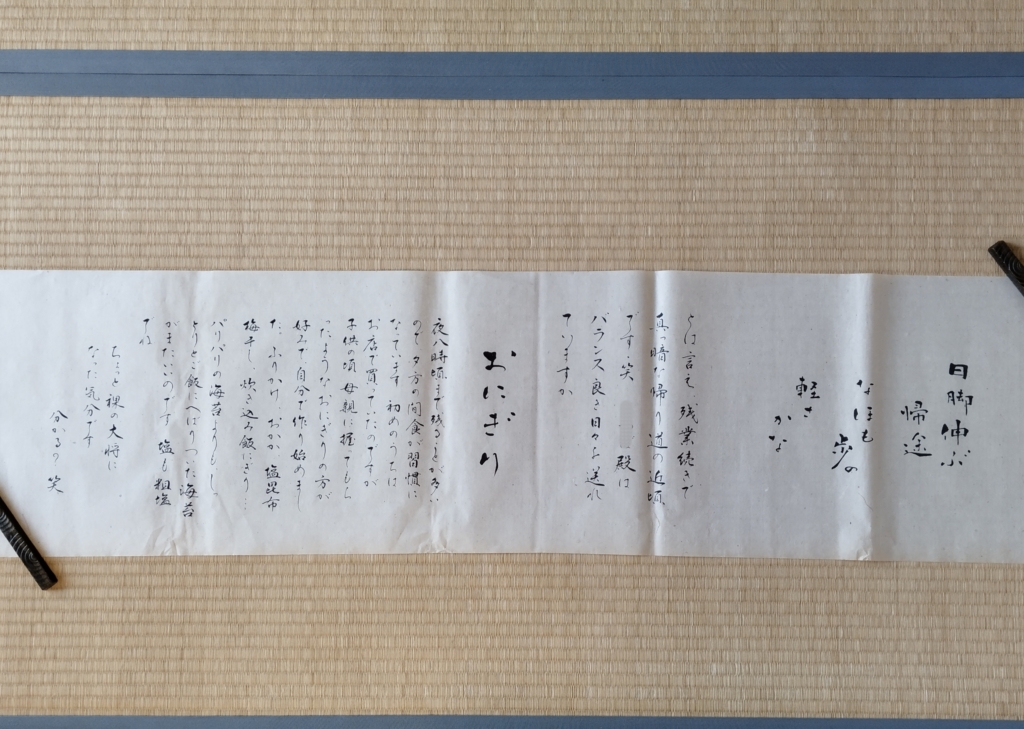 日脚伸ぶ
帰途
なほも
歩の
軽さ
かな
とは言え、残業続きで
真っ暗な帰り道の近頃
です。笑 殿は
バランス良き日々を送れ
ていますか
おにぎり
夜八時頃まで残ることが多い
ので夕方の間食が習慣に
なっています 初めのうちは
お店で買っていたのですが
子供の頃母親に握ってもら
ったようなおにぎりの方が
好みで自分で作り始めまし
た。ふりかけ、おかか 塩昆布
梅干し、炊き込み飯にぎり…
パリパリの海苔よりもしっ
とりとご飯にへばりついた海苔
がまたいいのです 塩も粗塩
でね
ちょっと裸の大将に
なった気分です
分かるの 笑